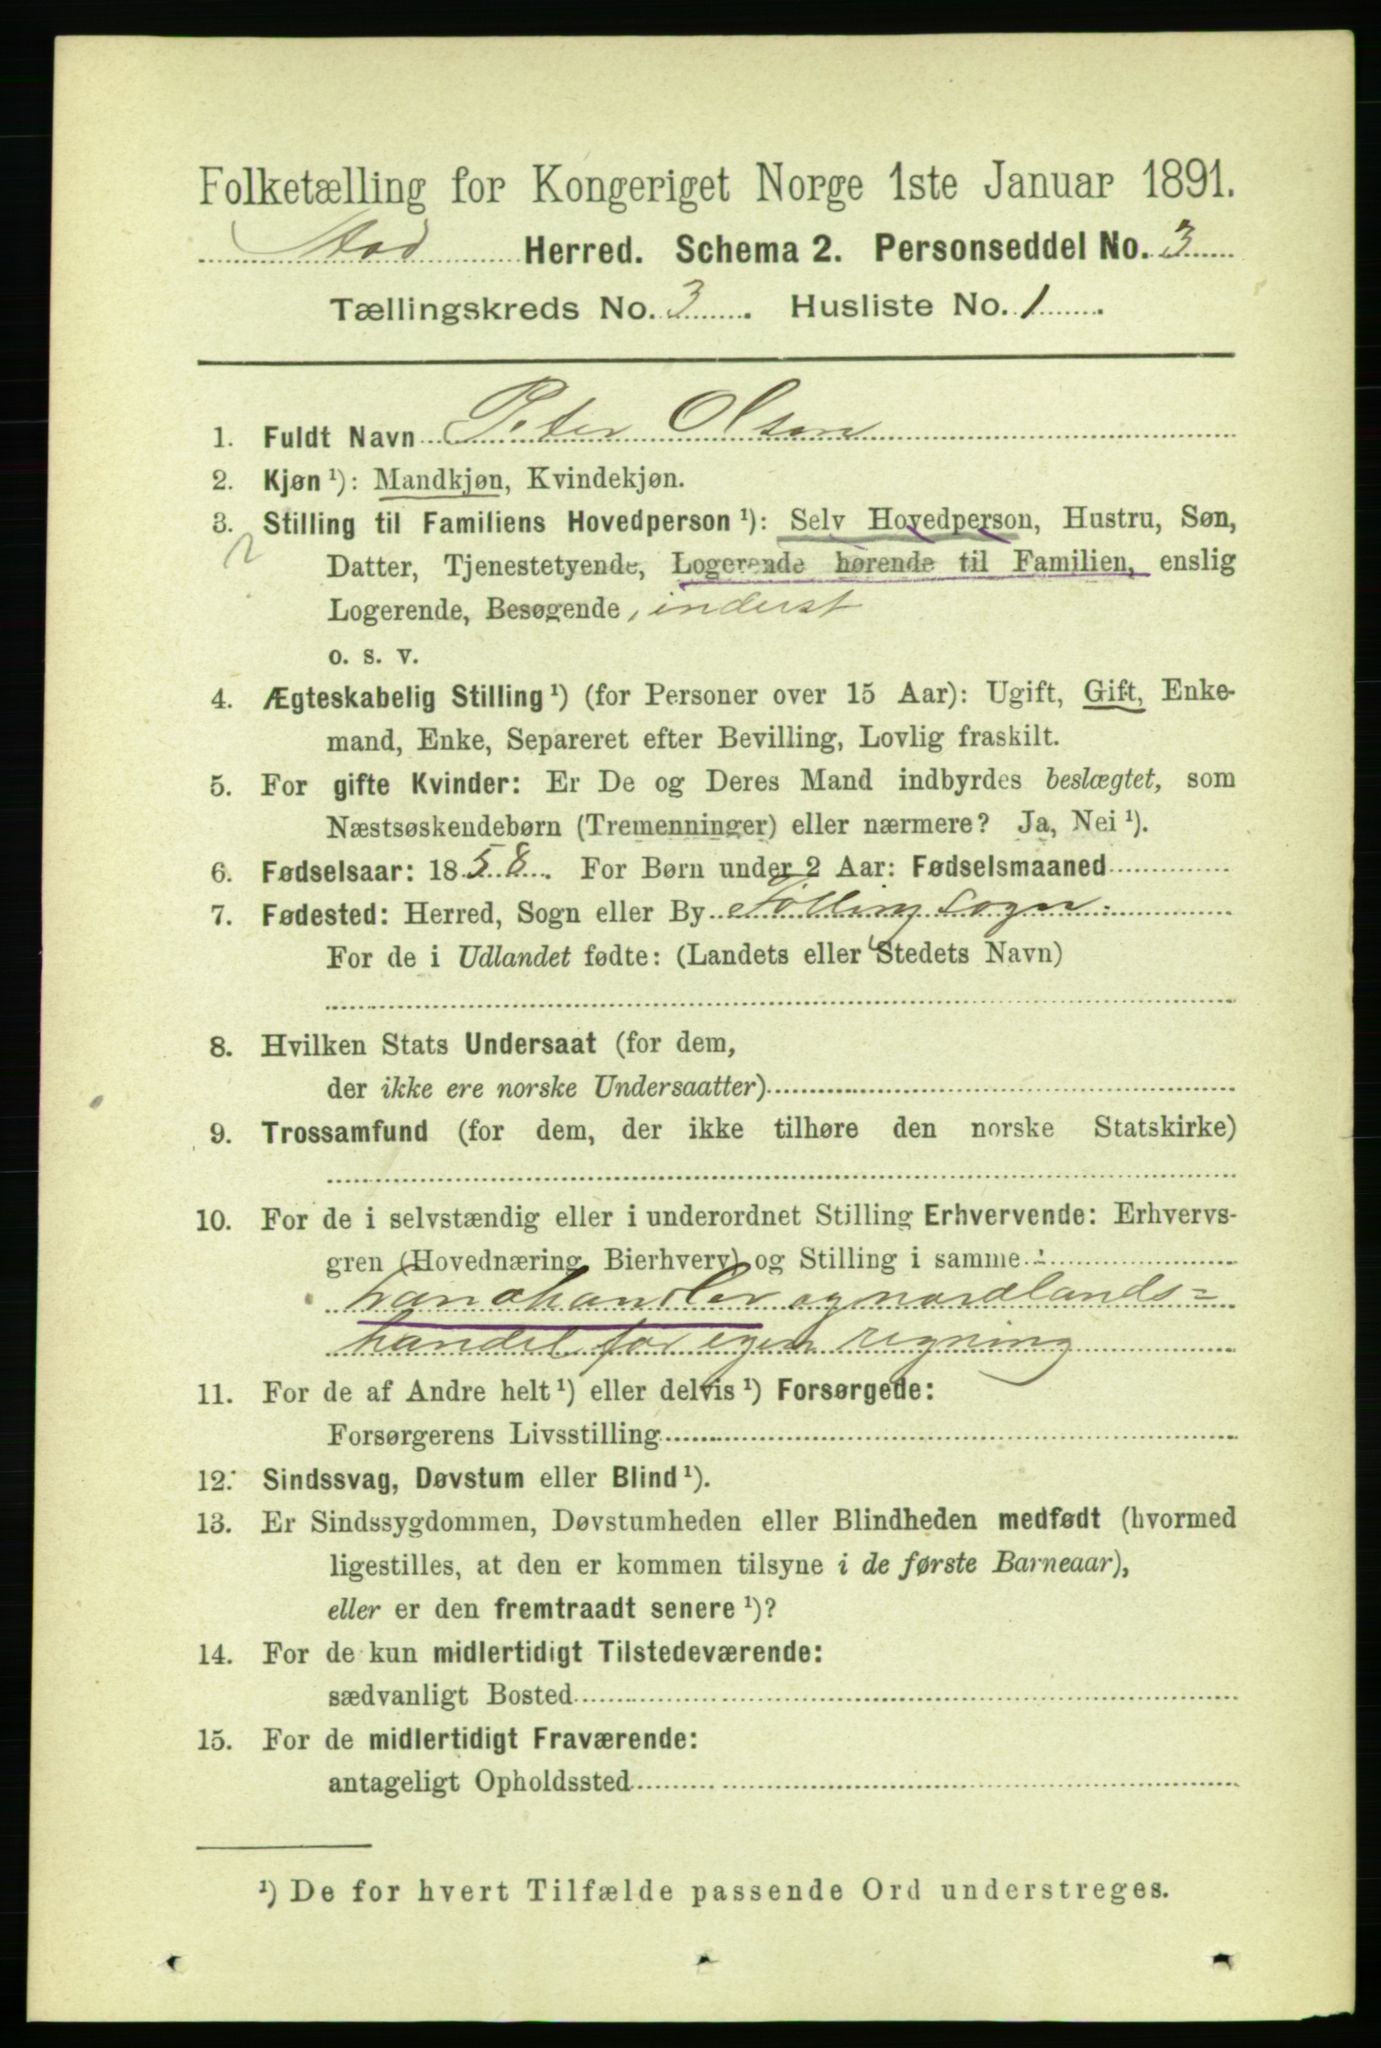 Folketælling for Kongeriget Norge 1ste Januar 1891.
Stod Herred. Schema 2. Personseddel No. 3
Tællingskreds No. 3. Husliste No. 1.
1. Fuldt Navn Peter Olsen
2. Kjøn ¹): Mandkjøn, Kvindekjøn.
3. Stilling til Familiens Hovedperson ¹): Selv Hovedperson, Hustru, Søn,
2 Datter, Tjenestetyende, Logerende hørende til Familien, enslig
Logerende, Besøgende, inderst
o. s. v.
4. Ægteskabelig Stilling ¹) (for Personer over 15 Aar): Ugift, Gift, Enke-
mand, Enke, Separeret efter Bevilling, Lovlig fraskilt.
5. For gifte Kvinder: Er De og Deres Mand indbyrdes beslægtet, som
Næstsøskendebørn (Tremenninger) eller nærmere? Ja, Nei ¹).
6. Fødselsaar: 1858. For Børn under 2 Aar: Fødselsmaaned
7. Fødested: Herred, Sogn eller By Følling Sogn.
For de i Udlandet fødte: (Landets eller Stedets Navn)
8. Hvilken Stats Undersaat (for dem,
der ikke ere norske Undersaatter)
9. Trossamfund (for dem, der ikke tilhøre den norske Statskirke)
10. For de i selvstændig eller i underordnet Stilling Erhvervende: Erhvervs-
gren (Hovednæring, Bierhverv) og Stilling i samme :
Landhandler og nordlands=
handel for egen regning
11. For de af Andre helt ¹) eller delvis ¹) Forsørgede:
Forsørgerens Livsstilling
12. Sindssvag, Døvstum eller Blind ¹).
13. Er Sindssygdommen, Døvstumheden eller Blindheden medfødt (hvormed
ligestilles, at den er kommen tilsyne i de første Barneaar),
eller er den fremtraadt senere ¹)?
14. For de kun midlertidigt Tilstedeværende:
sædvanligt Bosted
15. For de midlertidigt Fraværende:
antageligt Opholdssted
¹) De for hvert Tilfælde passende Ord understreges.